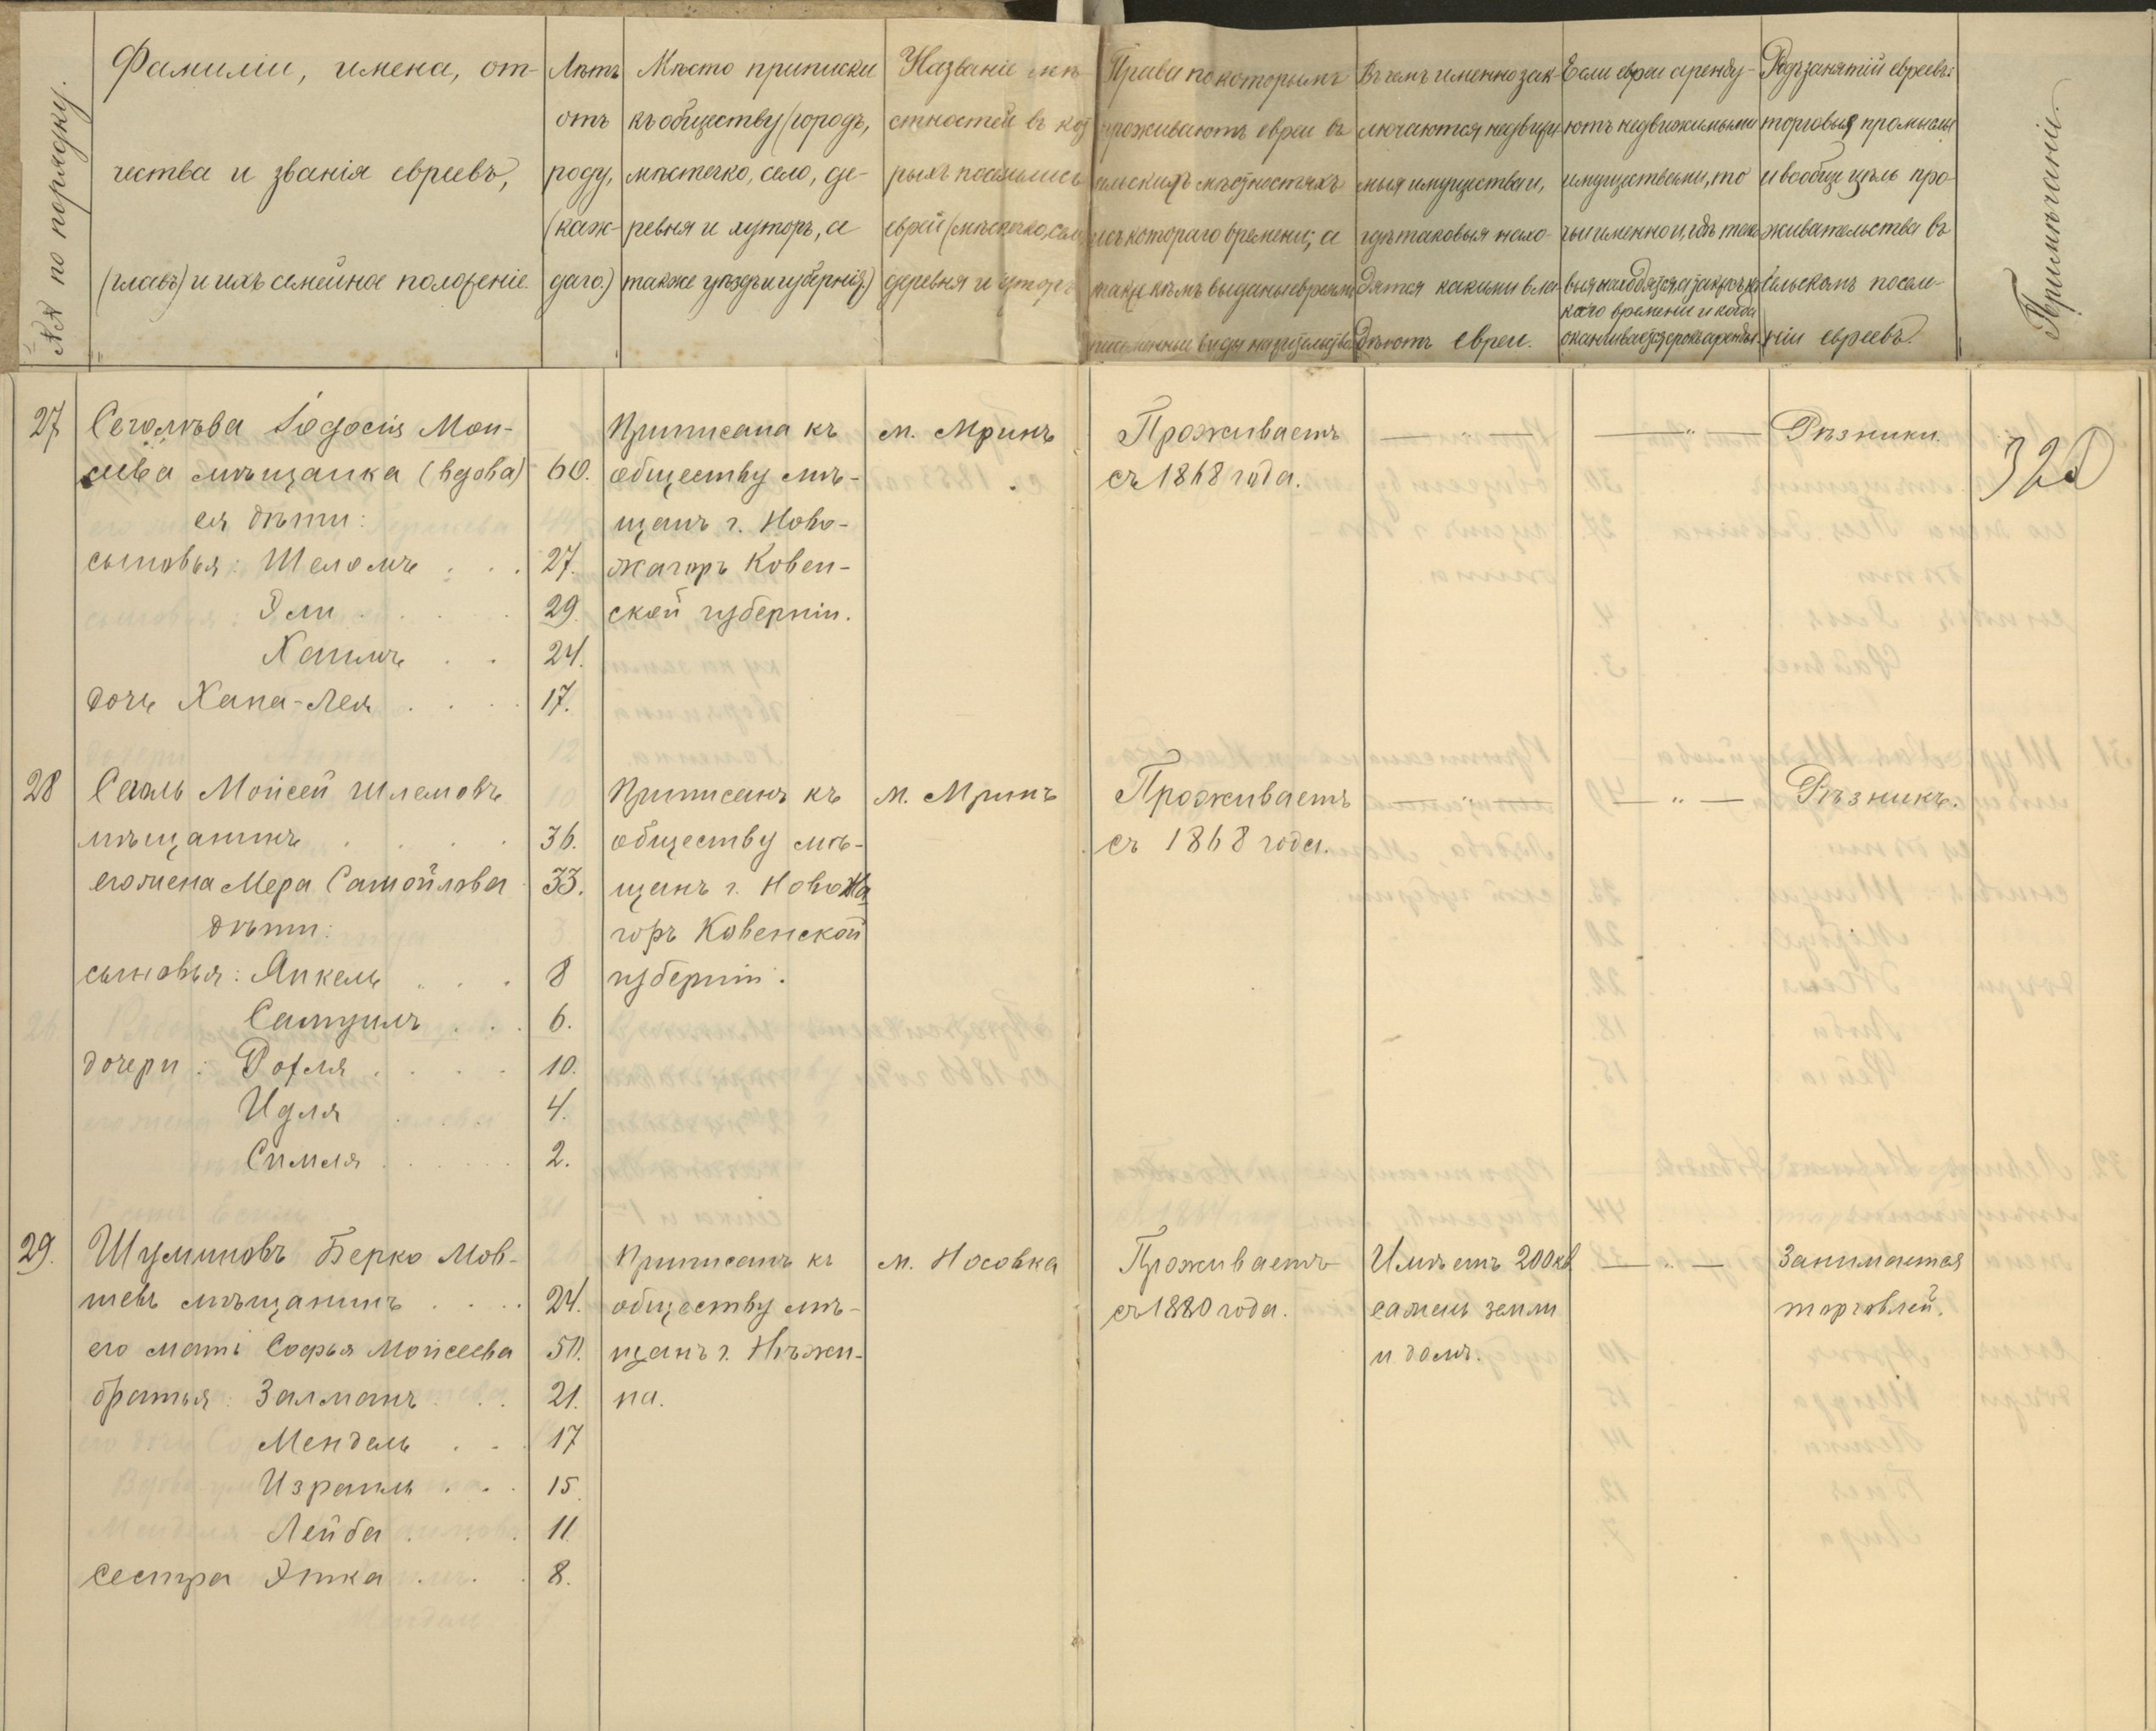 №№ по порядку.
Фамиліи, имена, от-
чества и званія евреевъ,
(главъ) и ихъ семейное положеніе.
Лѣтъ
отъ
роду,
(каж-
даго.)
Мѣсто приписки
къ обществу (городъ,
мѣстечко, село, де-
ревня и хуторъ, а
также уѣздъ и губернія.)
Названіе мѣ
стностей въ кот
рыхъ поселились
евреи (мѣстечко, село
деревня и хуторъ
Права по которымъ
проживаютъ евреи въ
сельскихъ мѣстностяхъ
съ котораго времени, а
также кѣмъ выданы евреямъ
письменные виды на жительство
Въ чемъ именно зак-
лючаются недвижи
мыя имущества и,
гдѣ таковыя нахо-
дятся какими вла-
дѣютъ евреи.
Если евреи аренду-
ютъ недвижимыми
имуществами, то
чьи именно и, гдѣ тако
выя находятся, а также съ ка
каго времени и когда
оканчивается срокъ аренды.
Родъ занятій евреевъ:
торговыя промыслы
и вообще цѣль про-
живательства въ
сельскомъ поселе-
ніи евреевъ.
Примѣчаніе.
27
Мои-
сѣева мѣщанка (вдова) 60.
ея дѣти:
сыновья: Шеломъ . . . 27.
Эли . . . . 29.
Хаимъ . . 24.
дочь Хана-Лея . . . . 17.
Приписана къ
обществу мѣ-
щанъ г. Ново-
жагоръ Ковен-
ской губерніи.
м. Мринъ
Проживаетъ
съ 1868 года.
— " —
— " —
Рѣзники.
320
28
Сегаль Моисей Шлемовъ
мѣщанинъ . . . . 36.
его жена Мера Самойлова 33.
дѣти:
сыновья: Янкель . . . 8
Самуилъ . . . 6.
дочери: Рохля . . . . 10.
Идля . . . . 4.
Симля . . . . . 2.
Приписанъ къ
обществу мѣ-
щанъ г. Новожа
горъ Ковенской
губерніи.
м. Мринъ
Проживаетъ
съ 1868 года.
— " —
— " —
Рѣзникъ.
29.
Шуминовъ Берко Мов-
шевъ мѣщанинъ . . . . 24.
его мать Софья Моисеева 50.
братья: Залманъ . . . 21.
Мендель . . . 17
Израиль . . . 15.
Лейба . . . . 11
сестра Этка . . . . 8.
Приписанъ къ
обществу мѣ-
щанъ г. Нѣжи-
на.
м. Носовка
Проживаетъ
съ 1880 года.
Имѣетъ 200 кв
сажень земли
и домъ.
— " —
Занимается
торговлей.